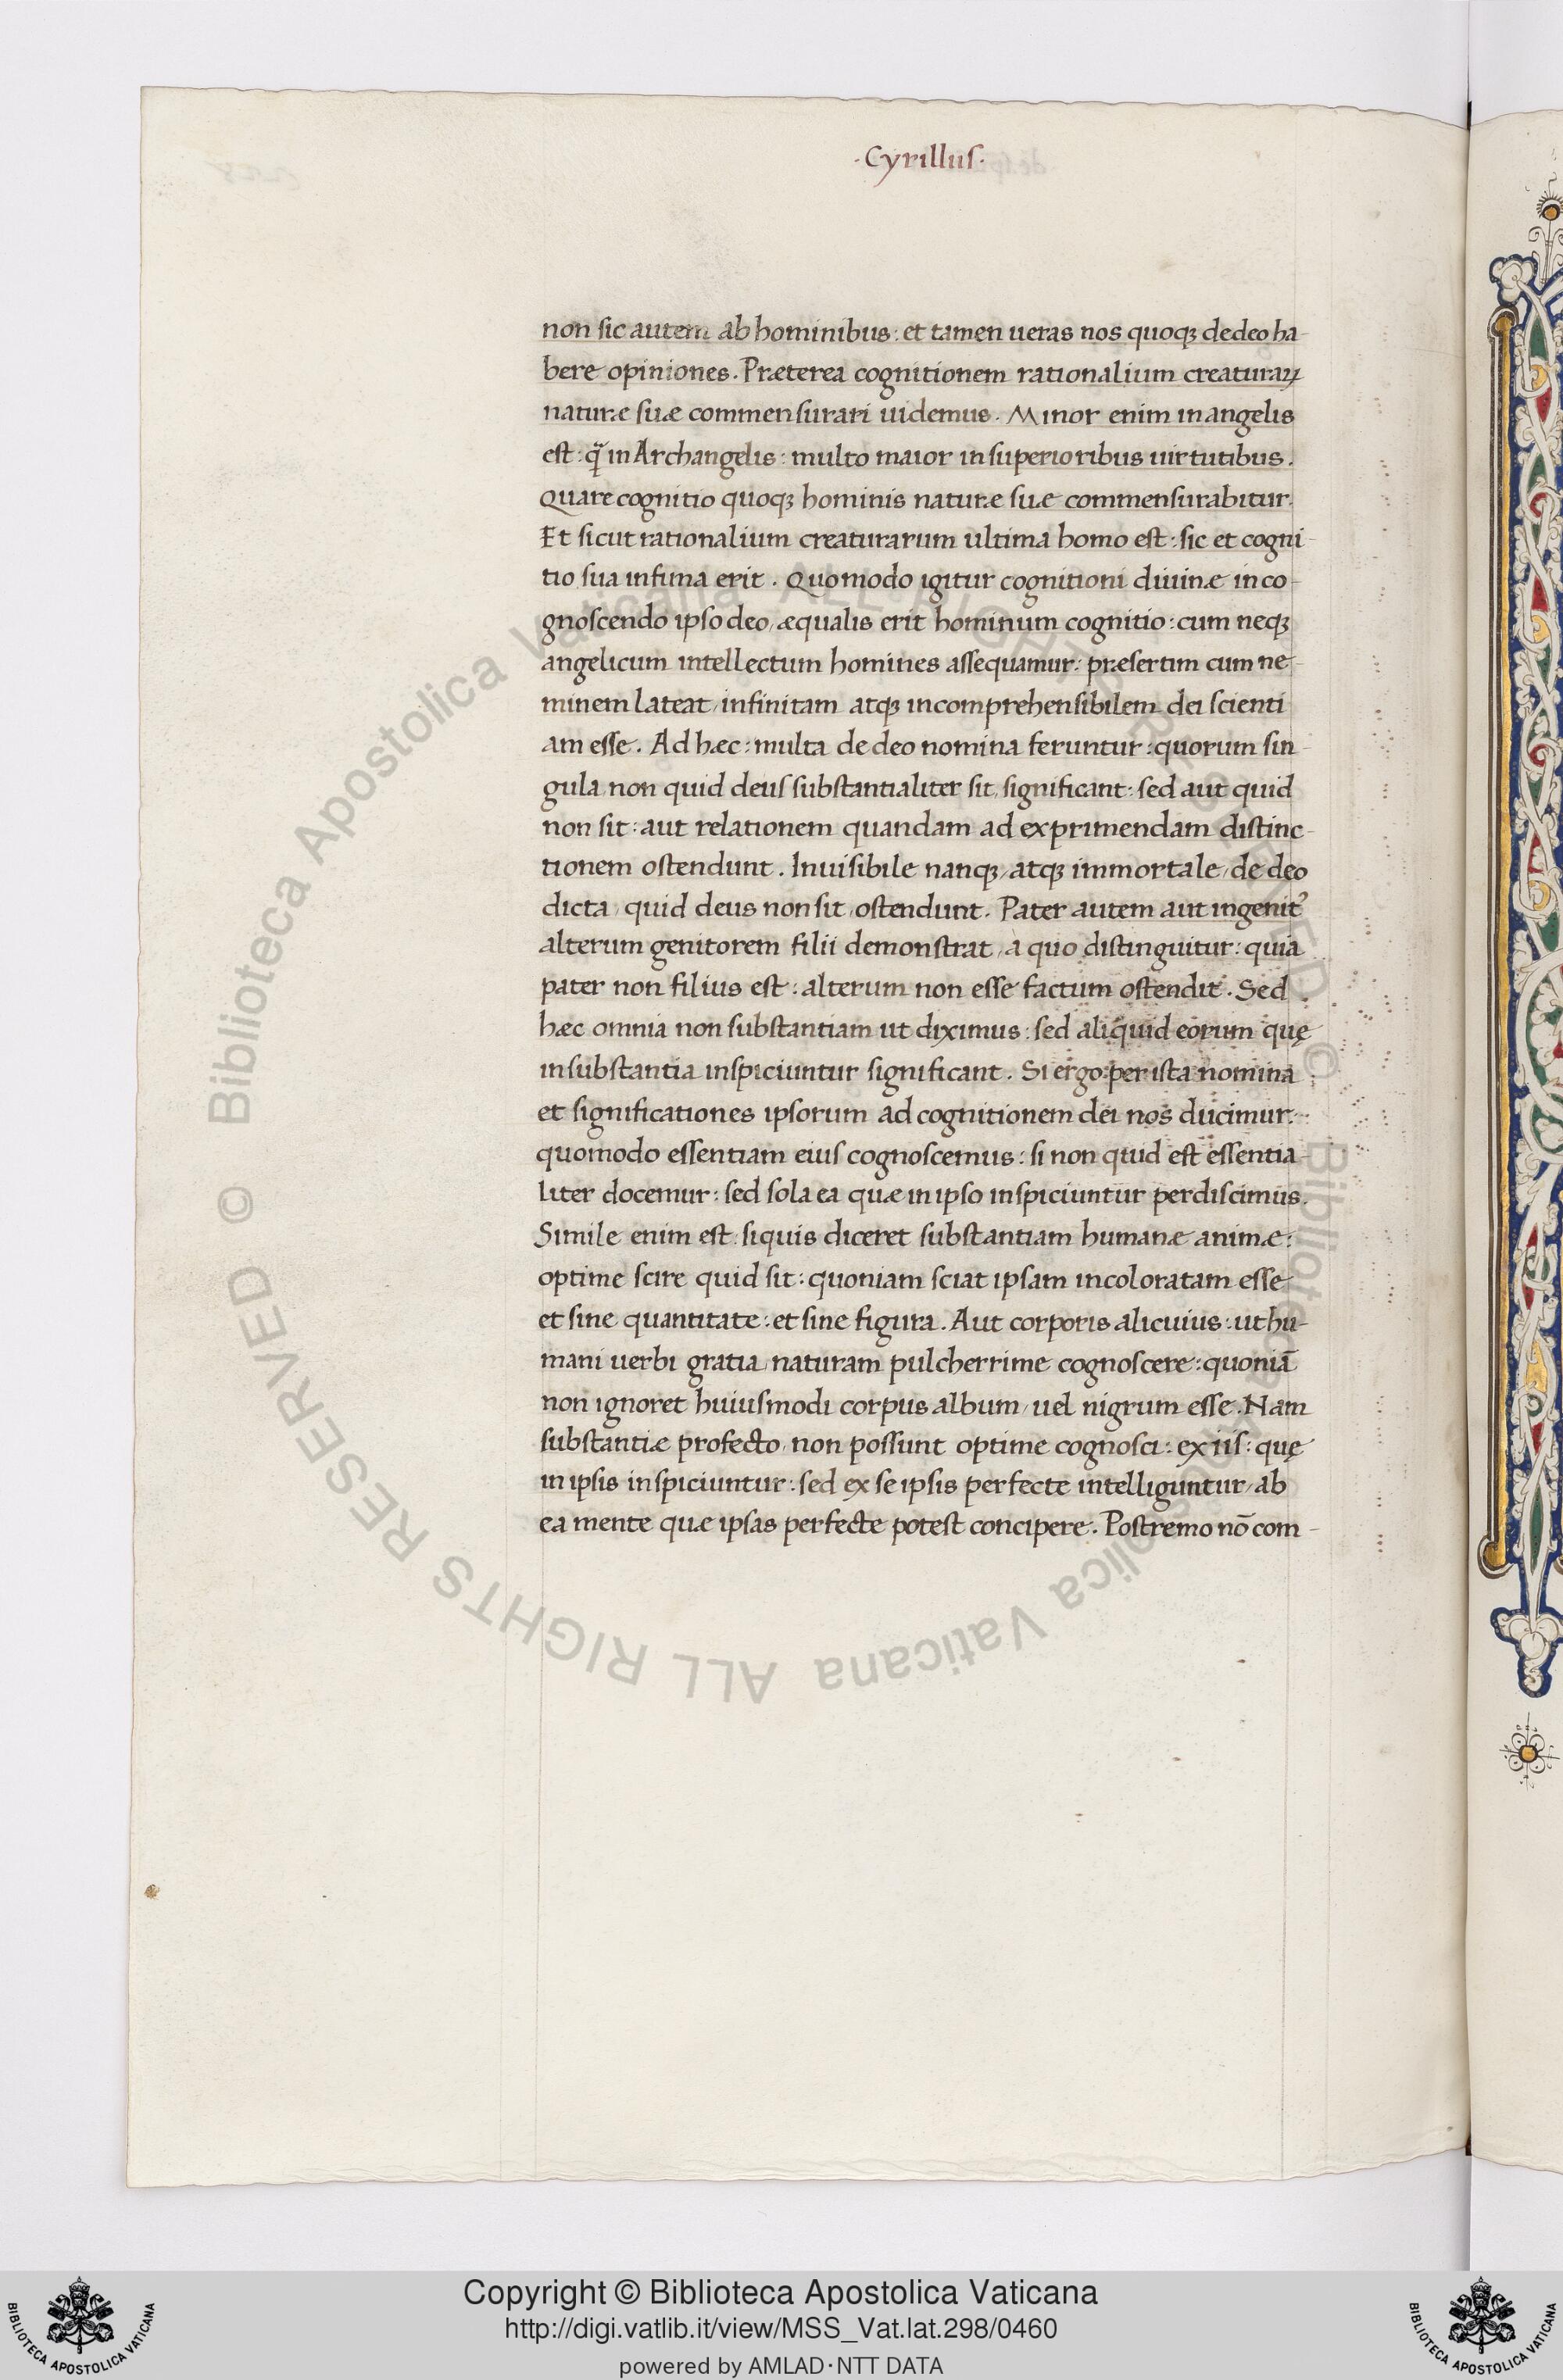 ·Cyrillus·
non sic autem ab hominibus: et tamen ueras nos quoqꝫ de deo ha-
bere opiniones. Præterea cognitionem rationalium creaturaꝝ
naturæ suæ commensurari uidemus. Minor enim in angelis
est: q̃ in Archangelis: multo maior in superioribus uirtutibus.
Quare cognitio quoqꝫ hominis naturæ suæ commensurabitur.
Et sicut rationalium creaturarum ultima homo est: sic et cogni-
tio sua infima erit. Quomodo igitur cognitioni diuinæ in co-
gnoscendo ipso deo, æqualis erit hominum cognitio: cum neqꝫ
angelicum intellectum homines assequamur: præsertim cum ne-
minem lateat, infinitam atqꝫ incomprehensibilem dei scienti
am esse. Ad hæc: multa de deo nomina feruntur: quorum sin-
gula non quid deus substantialiter sit, significant: sed aut quid
non sit: aut relationem quandam ad exprimendam distinc-
tionem ostendunt. Inuisibile nanqꝫ, atqꝫ immortale, de deo
dicta, quid deus non sit, ostendunt. Pater autem aut ingenitꝰ
alterum genitorem filii demonstrat, a quo distinguitur: quia
pater non filius est: alterum non esse factum ostendit. Sed
hæc omnia non substantiam ut diximus: sed aliquid eorum quę
in substantia inspiciuntur significant. Si ergo per ista nomina
et significationes ipsorum ad cognitionem dei nos ducimur:
quomodo essentiam eius cognoscemus: si non quid est essentia-
liter docemur: sed sola ea quæ in ipso inspiciuntur perdiscimus.
Simile enim est: siquis diceret substantiam humanæ animæ:
optime scire quid sit: quoniam sciat ipsam incoloratam esse
et sine quantitate: et sine figura. Aut corporis alicuius: ut hu-
mani uerbi gratia, naturam pulcherrime cognoscere: quoniā
non ignoret huiusmodi corpus album, uel nigrum esse. Nam
substantiæ profecto, non possunt optime cognosci: ex iis: quę
in ipsis inspiciuntur: sed ex se ipsis perfecte intelliguntur, ab
ea mente quæ ipsas perfecte potest concipere. Postremo nō com-
© Biblioteca Apostolica Vaticana ALL RIGHTS RESERVED © Biblioteca Apostolica Vaticana ALL RIGHTS RESERVED
Copyright © Biblioteca Apostolica Vaticana
http://digi.vatlib.it/view/MSS_Vat.lat.298/0460
powered by AMLAD·NTT DATA
BIBLIOTECA APOSTOLICA VATICANA
BIBLIOTECA APOSTOLICA VATICANA